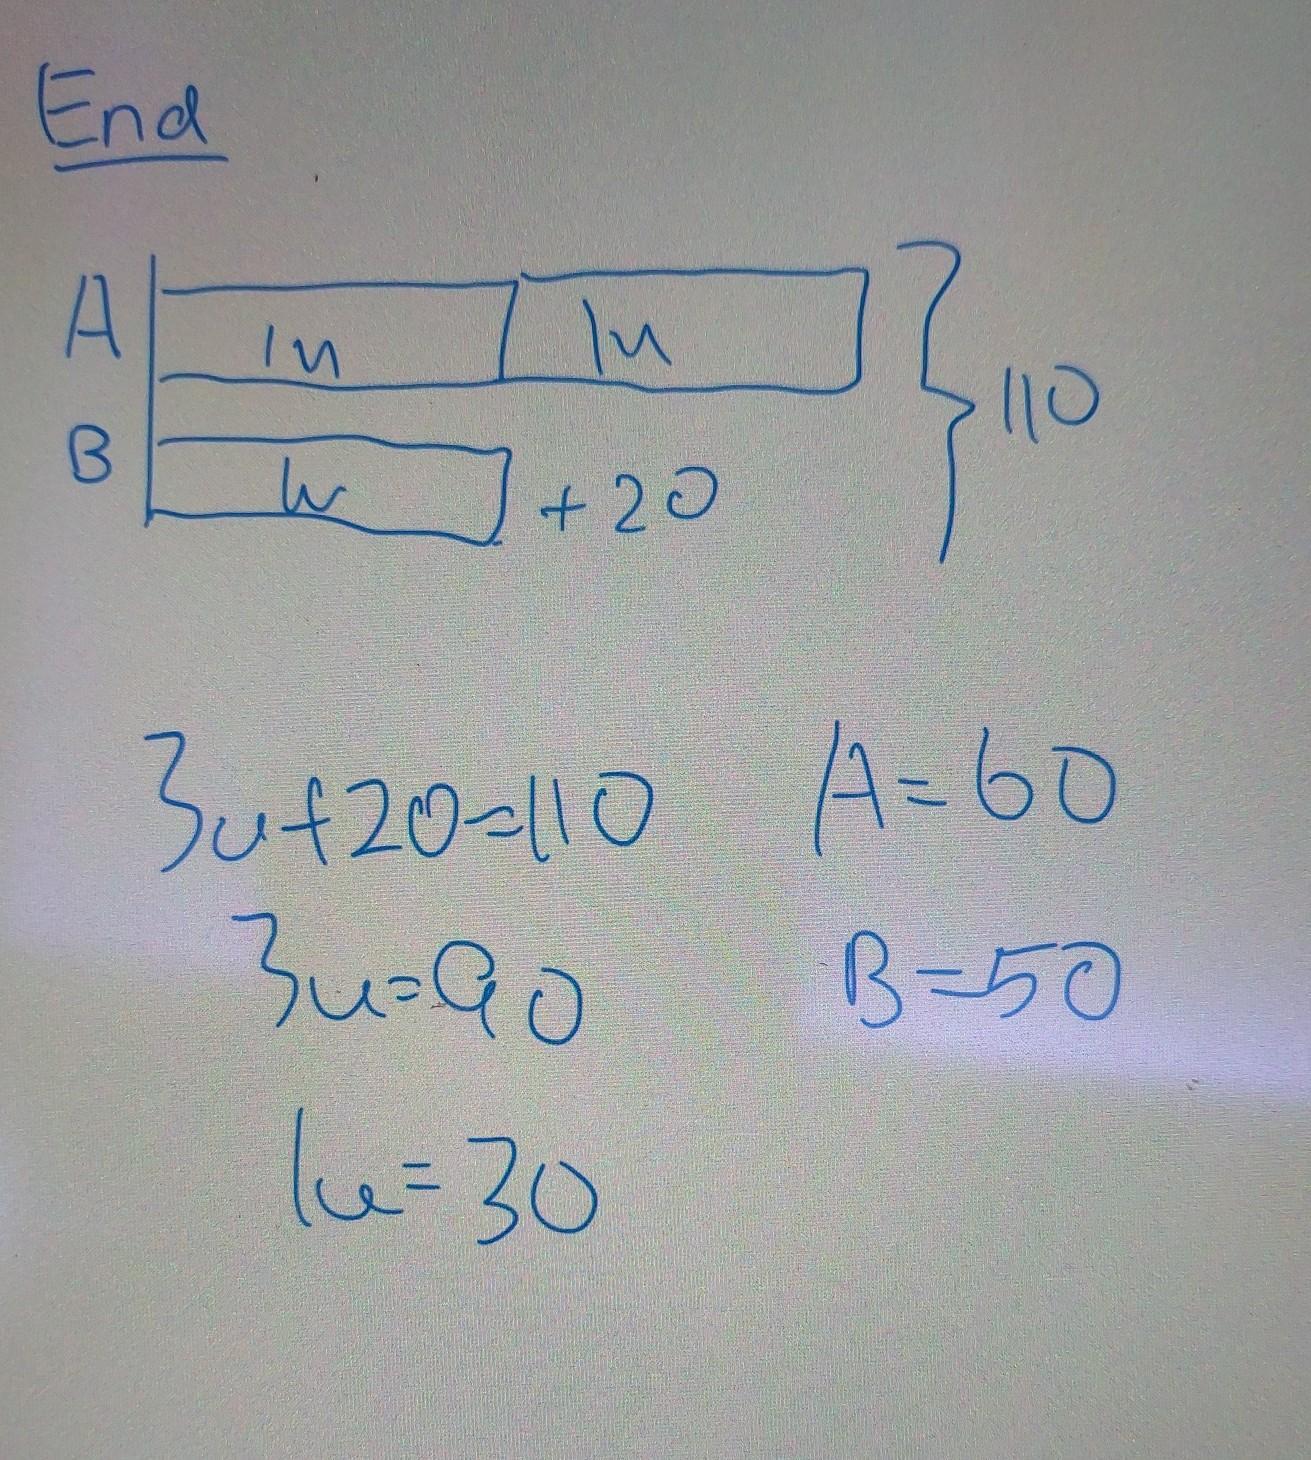 End
A 1u 1u
B 1u +20
110
3u+20=110
3u=90
1u=30
A=60
B=50